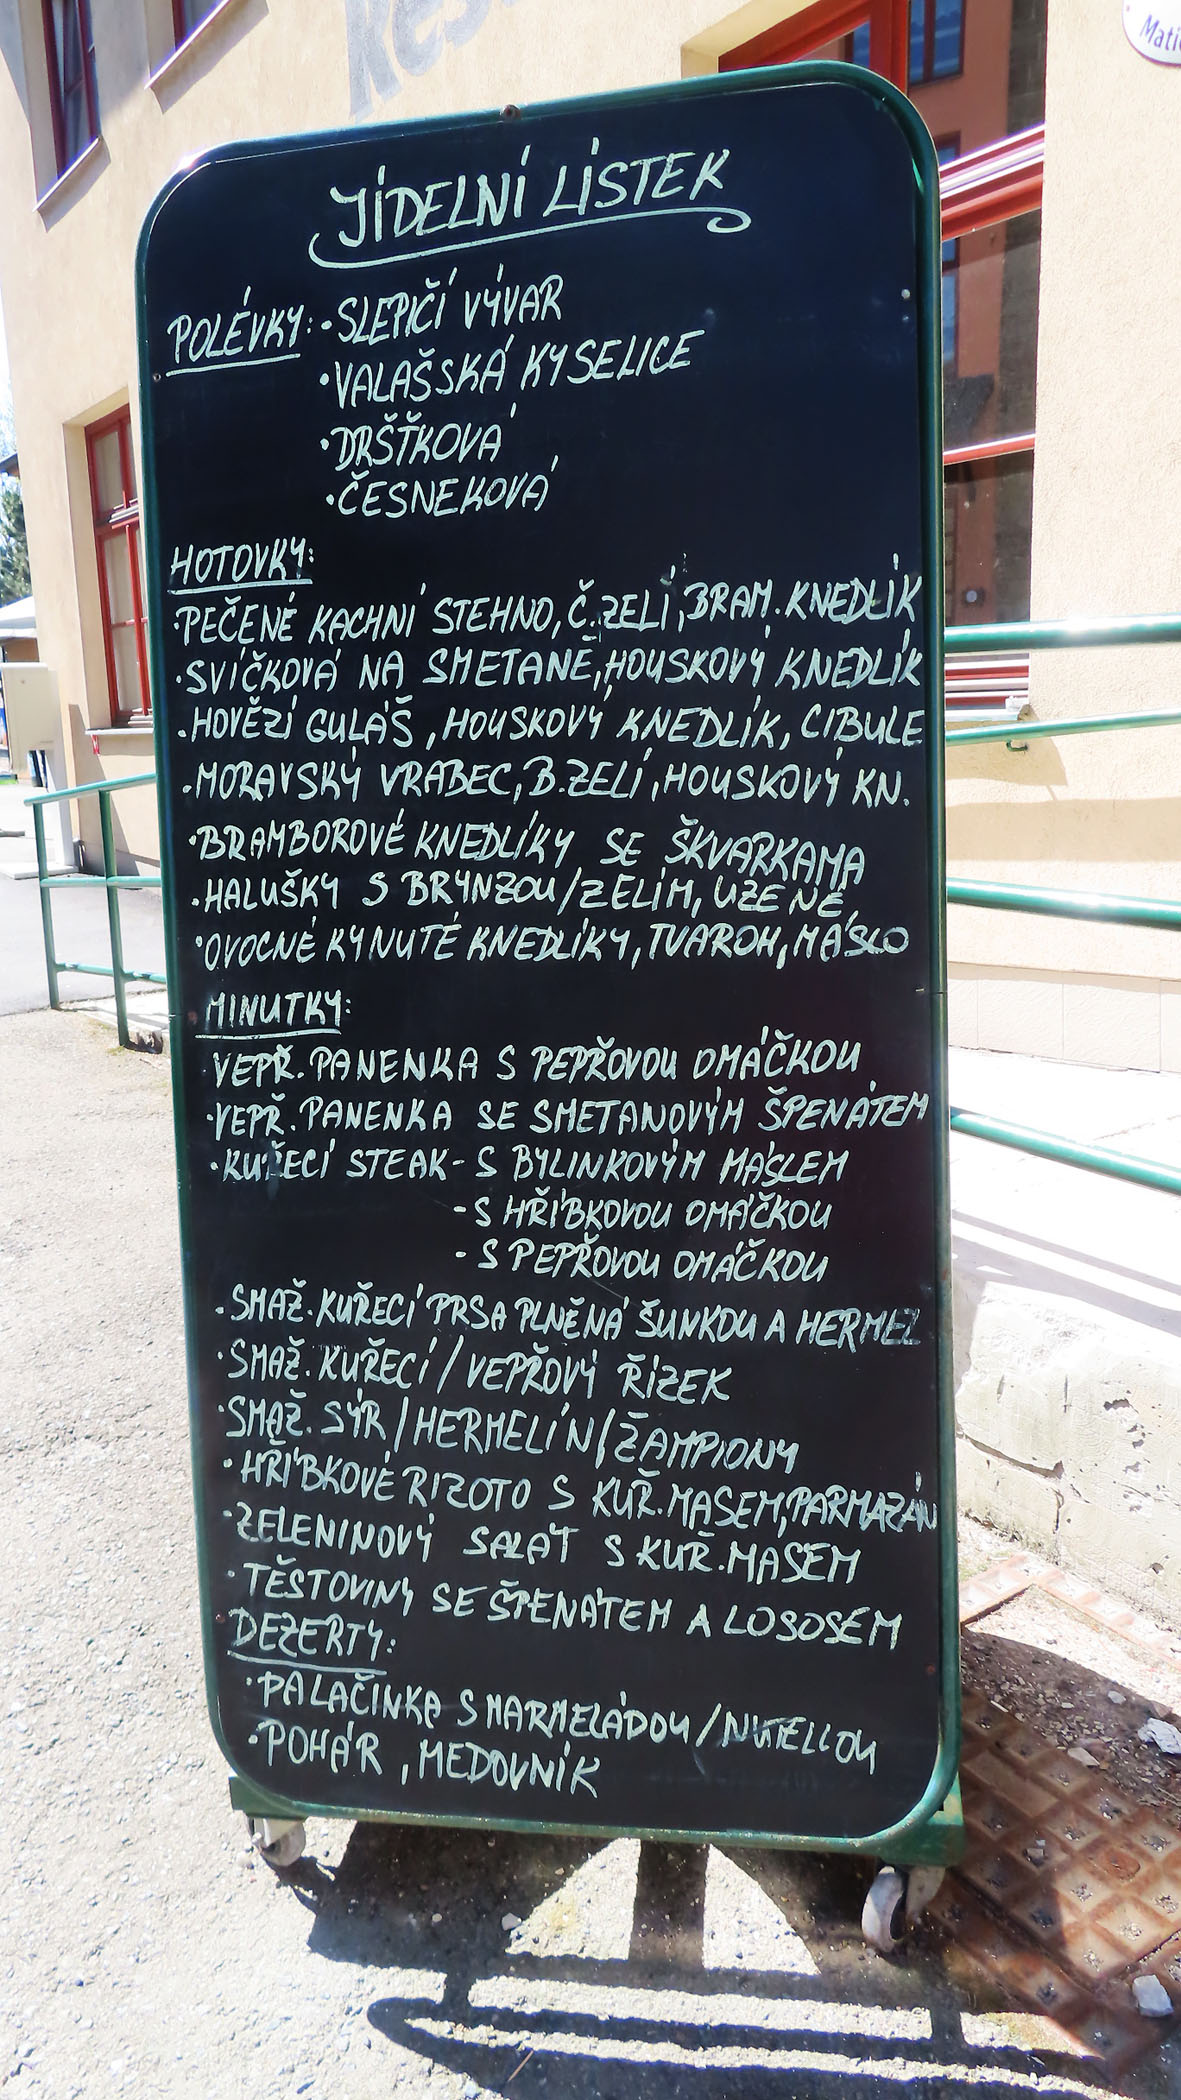 JÍDELNÍ LÍSTEK
POLÉVKY: • SLEPIČÍ VÝVAR
• VALAŠSKÁ KYSELICE
• DRŠŤKOVÁ
• ČESNEKOVÁ
HOTOVKY:
• PEČENÉ KACHNÍ STEHNO, Č. ZELÍ, BRAM. KNEDLÍK
• SVÍČKOVÁ NA SMETANĚ, HOUSKOVÝ KNEDLÍK
• HOVĚZÍ GULÁŠ, HOUSKOVÝ KNEDLÍK, CIBULE
• MORAVSKÝ VRABEC, B. ZELÍ, HOUSKOVÝ KN.
• BRAMBOROVÉ KNEDLÍKY SE ŠKVARKAMA
• HALUŠKY S BRYNZOU/ZELÍM, UZENÉ
• OVOCNÉ KYNUTÉ KNEDLÍKY, TVAROH, MÁSLO
MINUTKY:
VEPŘ. PANENKA S PEPŘOVOU OMÁČKOU
• VEPŘ. PANENKA SE SMETANOVÝM ŠPENÁTEM
• KUŘECÍ STEAK - S BYLINKOVÝM MÁSLEM
- S HŘÍBKOVOU OMÁČKOU
- S PEPŘOVOU OMÁČKOU
• SMAŽ. KUŘECÍ PRSA PLNĚNÁ ŠUNKOU A HERMEL
• SMAŽ. KUŘECÍ / VEPŘOVÝ ŘÍZEK
• SMAŽ. SÝR / HERMELÍN / ŽAMPIONY
• HŘÍBKOVÉ RIZOTO S KUŘ. MASEM, PARMAZÁN
• ZELENINOVÝ SALÁT S KUŘ. MASEM
• TĚSTOVINY SE ŠPENÁTEM A LOSOSEM
DEZERTY:
• PALAČINKA S MARMELÁDOU / NUTELLOU
• POHÁR, MEDOVNÍK